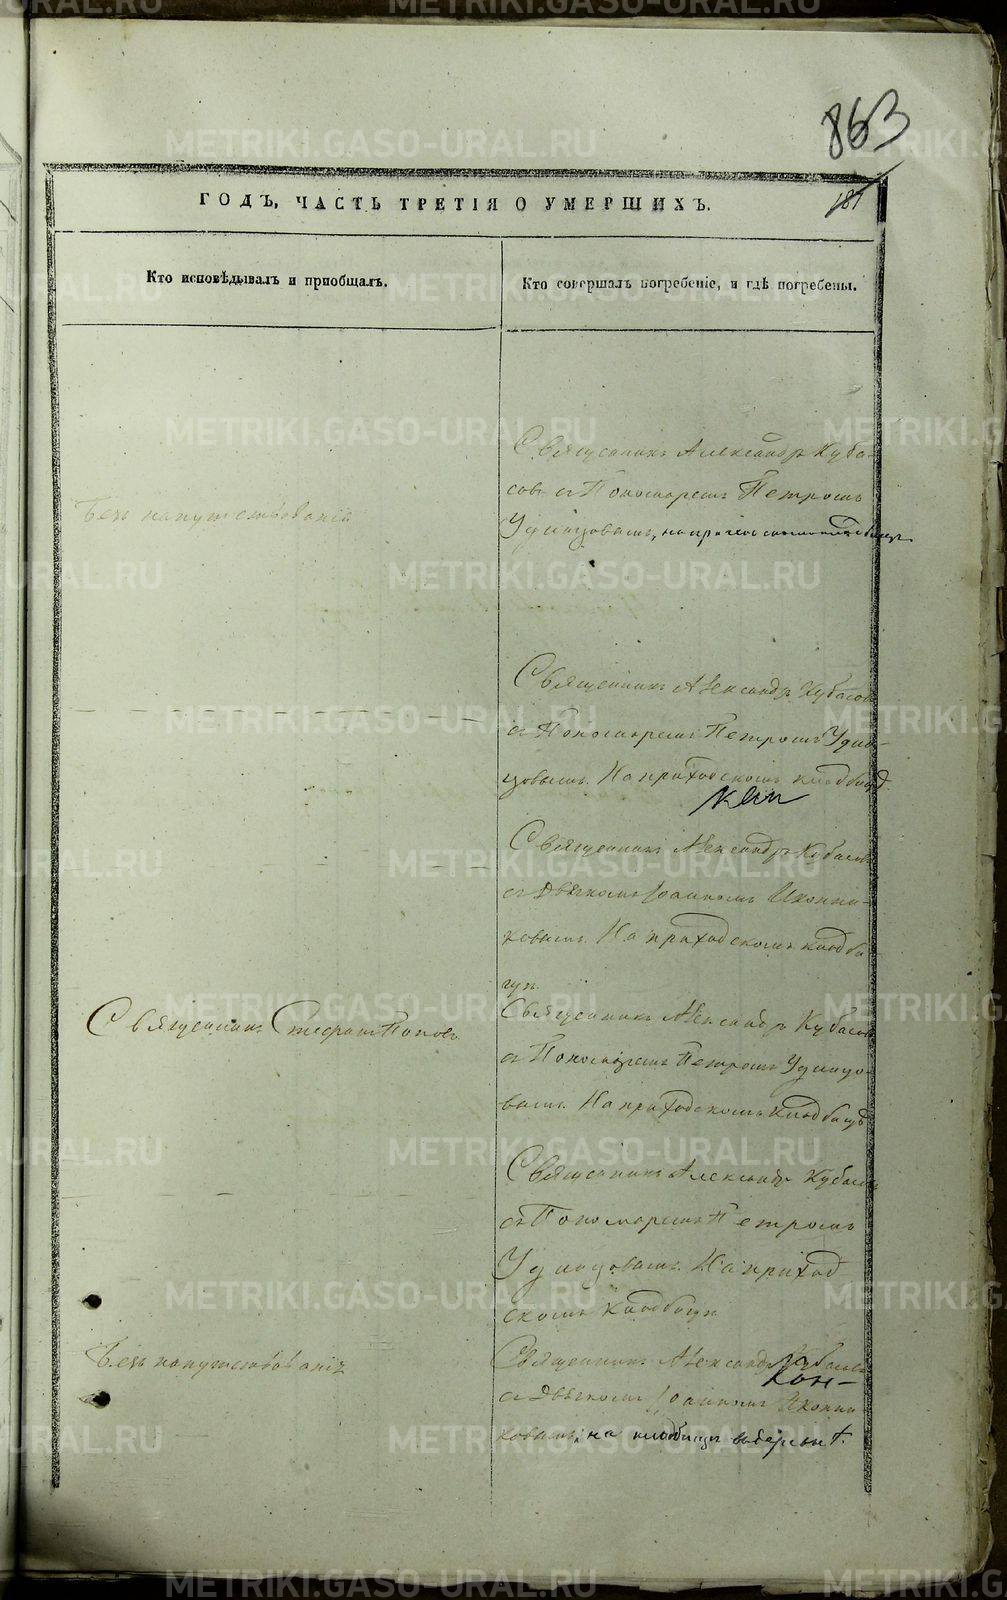 863
187
ГОДЪ, ЧАСТЬ ТРЕТІЯ О УМЕРШИХЪ.
Кто исповѣдывалъ и приобщалъ.
Кто совершалъ погребеніе, и гдѣ погребены.
Священникъ Александръ Куба-
совъ съ Пономаремъ Петромъ
Безъ напутствованія
Удинцовымъ, на приходскомъ кладбищѣ
Священникъ Александръ Кубасовъ
съ Пономаремъ Петромъ Удин-
цовымъ. На приходскомъ кладбищѣ.
Священникъ Александръ Кубасовъ
съ Дьячкомъ Іоанномъ Иконни-
ковымъ. На приходскомъ кладби-
щѣ.
Священникъ Стефанъ Поповъ
Священникъ Александръ Кубасовъ
съ Пономаремъ Петромъ Удинцо-
вымъ. На приходскомъ кладбищѣ
Священникъ Александръ Кубасовъ
съ Пономаремъ Петромъ
Удинцовымъ. На приход
скомъ кладбищѣ
Безъ напутствованія
Священникъ Александръ Кубасовъ
съ Дьячкомъ Іоанномъ Иконни-
ковымъ, на кладбищѣ
METRIKI.GASO-URAL.RU